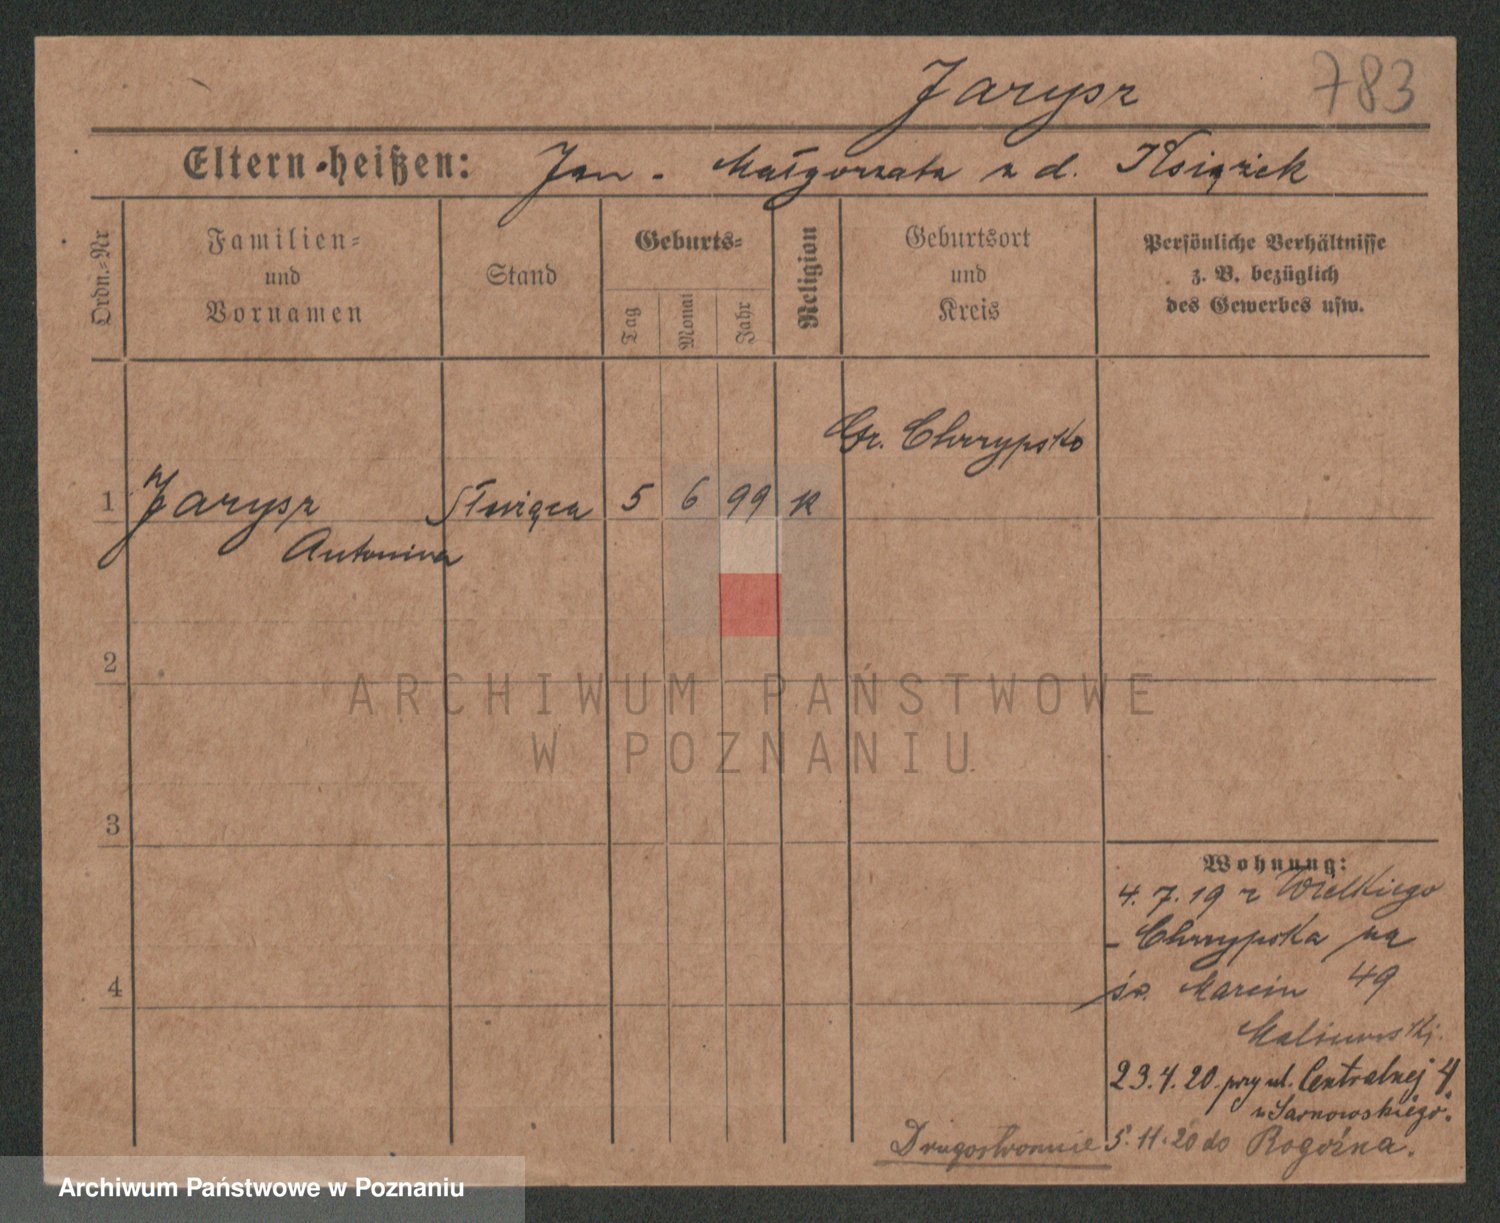 Jarysz 783
Eltern heißen: Jan - Małgorzata z d. Książek
Ordn.=Nr
Familien=
und
Vornamen
Stand
Geburts=
Tag
Monat
Jahr
Religion
Geburtsort
und
Kreis
Persönliche Verhältnisse
z. B. bezüglich
des Gewerbes usw.
Gr. Chrzypsko
1 Jarysz Służąca 5 6 99 k
Antonina
2
ARCHIWUM PAŃSTWOWE
W POZNANIU
3
Wohnung:
4.7.19 z Wielkiego
- Chrzypska na
4 św. Marcin 49
Maliowski.
23.4.20. przy ul. Centralnej 4
u Sarnowskiego.
Drugostronnie 5.11.20 do Rogoźna.
Archiwum Państwowe w Poznaniu